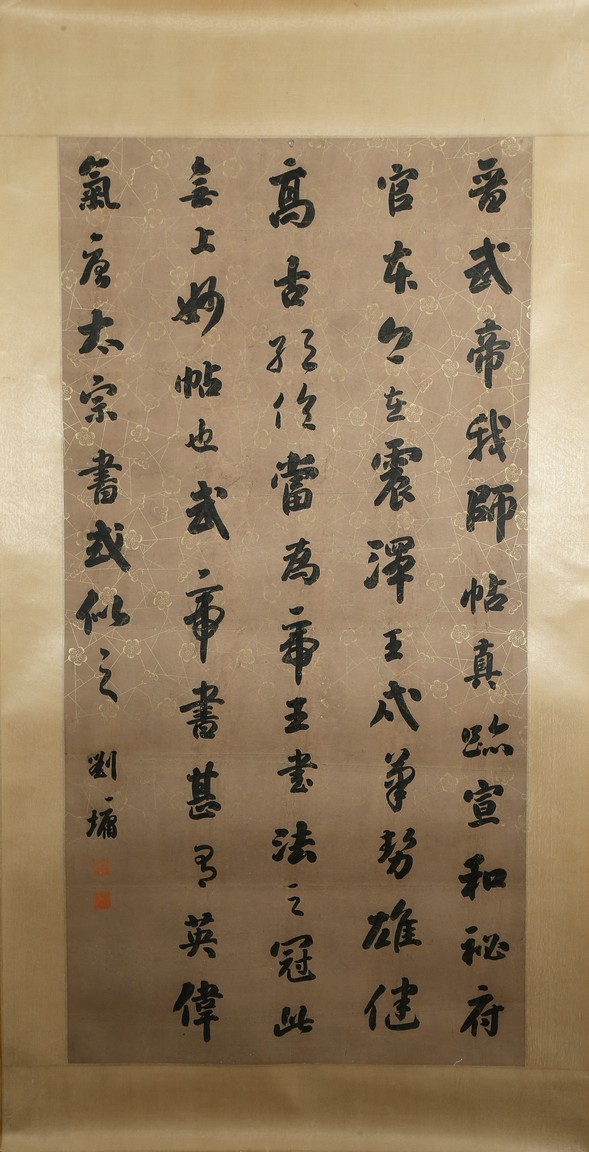 晉武帝我師帖真跡宣和秘府
官本今在震澤王氏筆勢雄健
高古絕倫當為帝王書法之冠此
無上妙帖也武帝書甚有英偉
氣唐太宗書或似之
劉墉